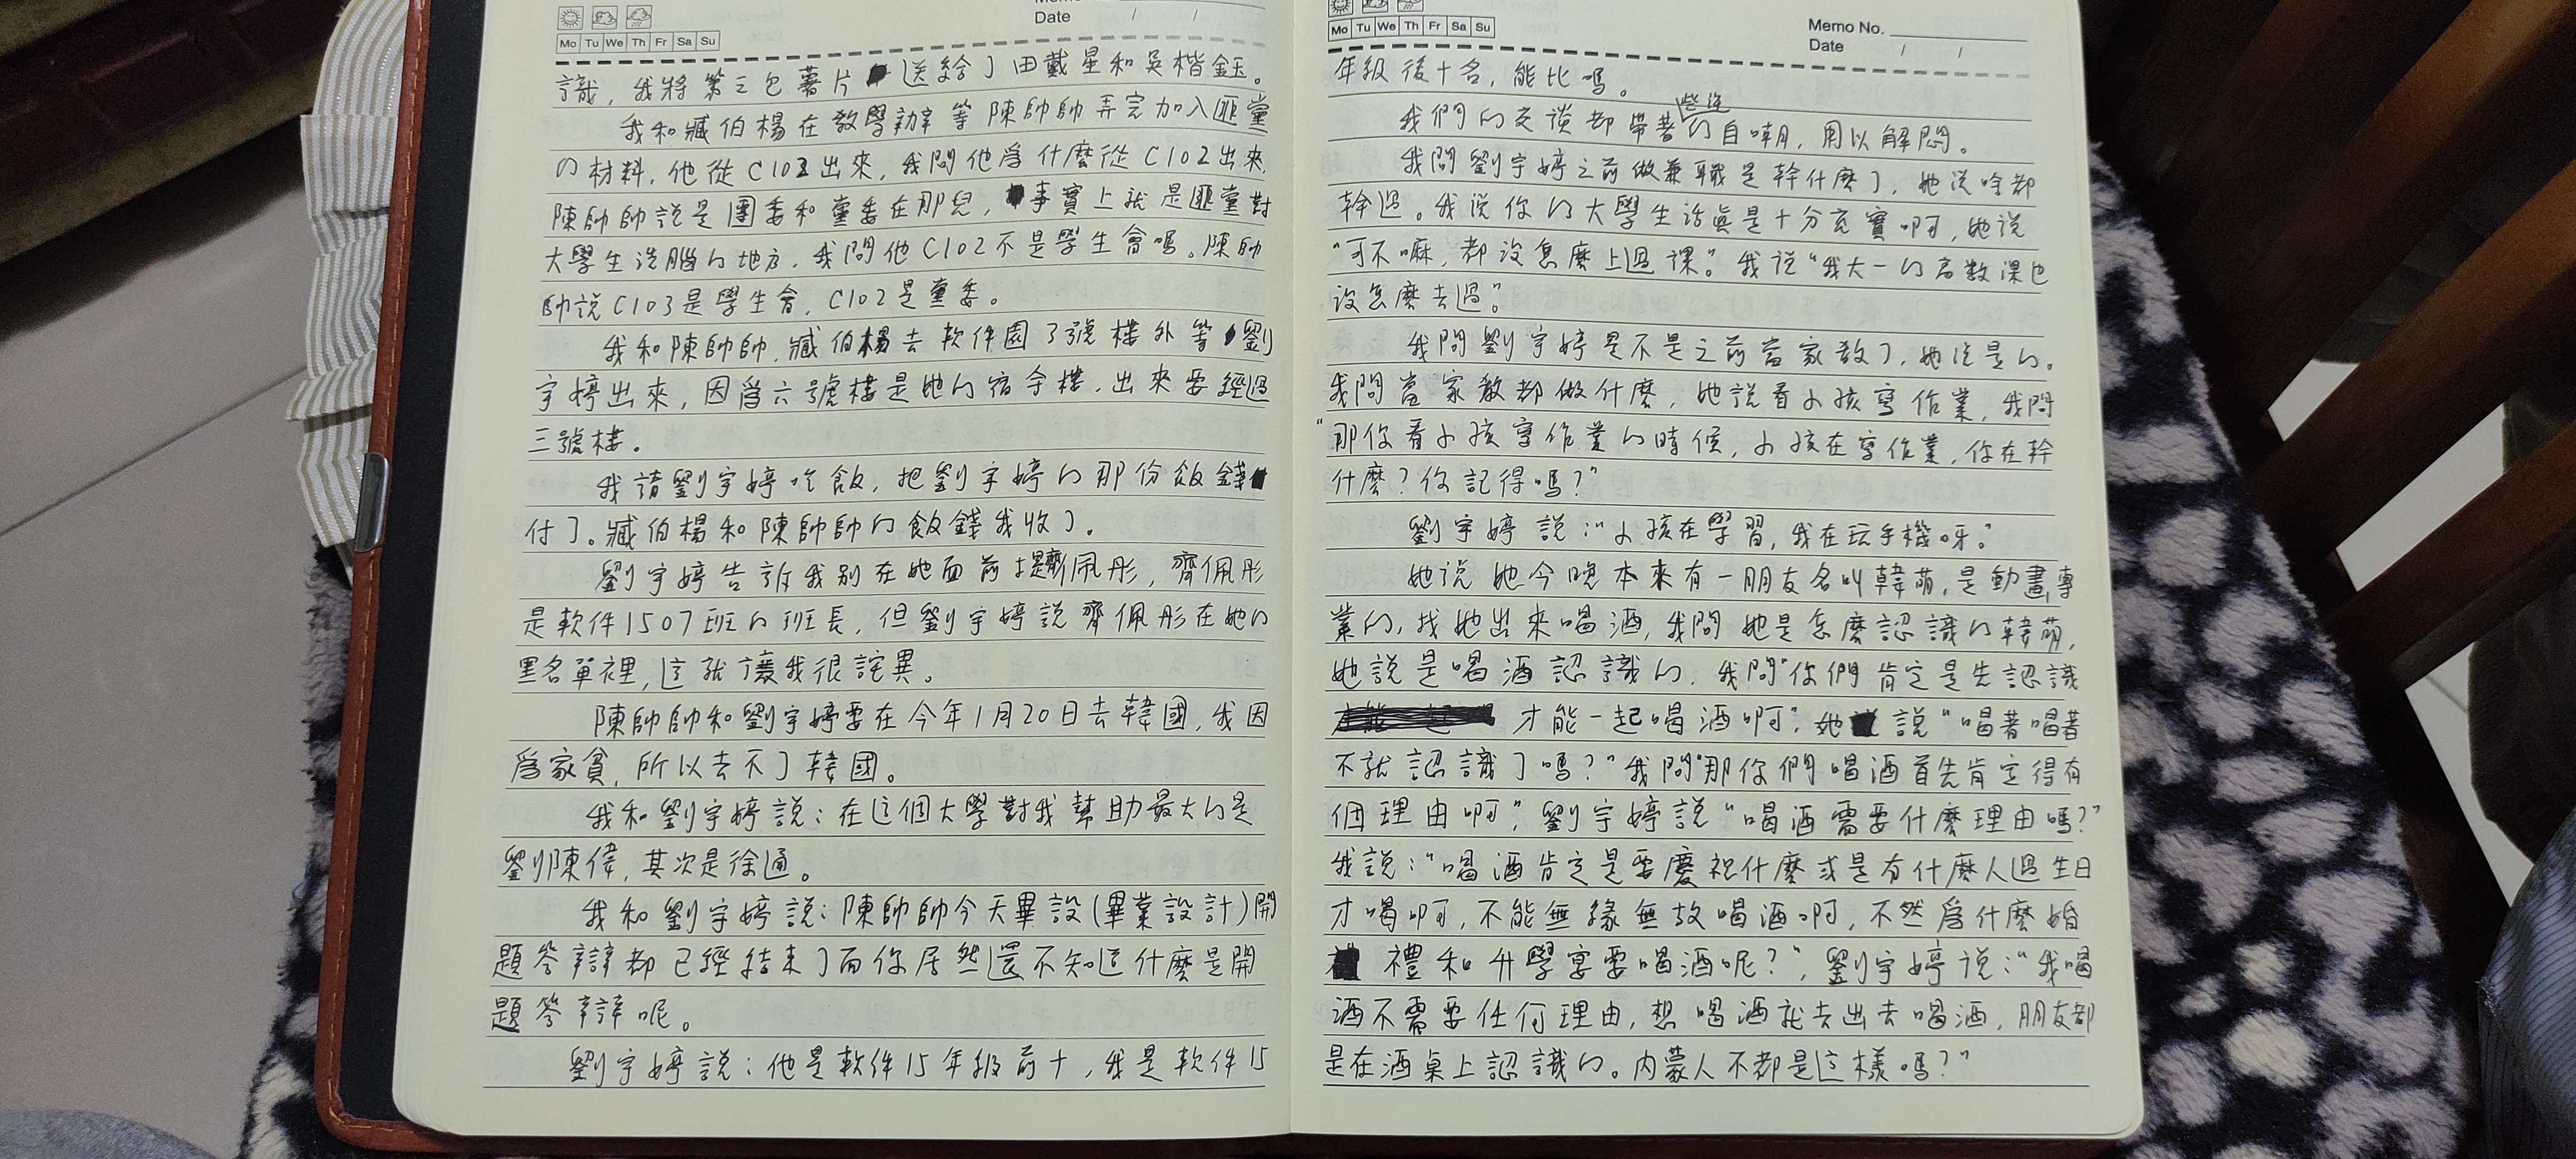 Date / /
Mo Tu We Th Fr Sa Su
識，我將第三包薯片送給了田戴星和吳楷鈺。
我和臧伯楊在教學辦等陳帥帥弄完加入匪黨
的材料，他從C102出來，我問他爲什麼從C102出來，
陳帥帥說是團委和黨委在那兒，事實上就是匪黨對
大學生洗腦的地方，我問他C102不是學生會嗎。陳帥
帥說C103是學生會，C102是黨委。
我和陳帥帥，臧伯楊去軟件園3號樓外等劉
宇婷出來，因爲六號樓是她的宿舍樓，出來要經過
三號樓。
我請劉宇婷吃飯，把劉宇婷的那份飯錢
付了。臧伯楊和陳帥帥的飯錢我收了。
劉宇婷告訴我别在她面前提齊佩彤，齊佩彤
是軟件1507班的班長，但劉宇婷說齊佩彤在她的
黑名單裡，這就讓我很詫異。
陳帥帥和劉宇婷要在今年1月20日去韓國，我因
爲家貧，所以去不了韓國。
我和劉宇婷說：在這個大學對我幫助最大的是
劉陳偉，其次是徐通。
我和劉宇婷說：陳帥帥今天畢設(畢業設計)開
題答辯都已經結束了而你居然還不知道什麼是開
題答辯呢。
劉宇婷說：他是軟件15年級前十，我是軟件15
Mo Tu We Th Fr Sa Su
Memo No.
Date / /
年級後十名，能比嗎。
我們的交談都帶著些許的自嘲，用以解悶。
我問劉宇婷之前做兼職是幹什麼了，她说啥都
幹過。我说你的大學生活眞是十分充實啊，她说
“可不嘛，都没怎麼上過课。”我说“我大一的高数課也
没怎麼去過。”
我問劉宇婷是不是之前當家教了，她说是的。
我問當家教都做什麼，她說看小孩寫作業，我問
“那你看小孩寫作業的時候，小孩在寫作業，你在幹
什麼？你記得嗎？”
劉宇婷說：“小孩在學習，我在玩手機呀。”
她说她今晚本來有一朋友名叫韓萌，是動畫專
業的，找她出來喝酒，我問她是怎麼認識的韓萌，
她說是喝酒認識的，我問“你們肯定是先認識
才能一起喝酒啊”，她說“喝著喝著
不就認識了嗎？”我問“那你們喝酒首先肯定得有
個理由啊”，劉宇婷說“喝酒需要什麼理由嗎？”
我說：“喝酒肯定是要慶祝什麼或是有什麼人過生日
才喝啊，不能無緣無故喝酒啊，不然爲什麼婚
禮和升學宴要喝酒呢？”，劉宇婷说：“我喝
酒不需要任何理由，想喝酒就去出去喝酒，朋友都
是在酒桌上認識的。内蒙人不都是這樣嗎？”